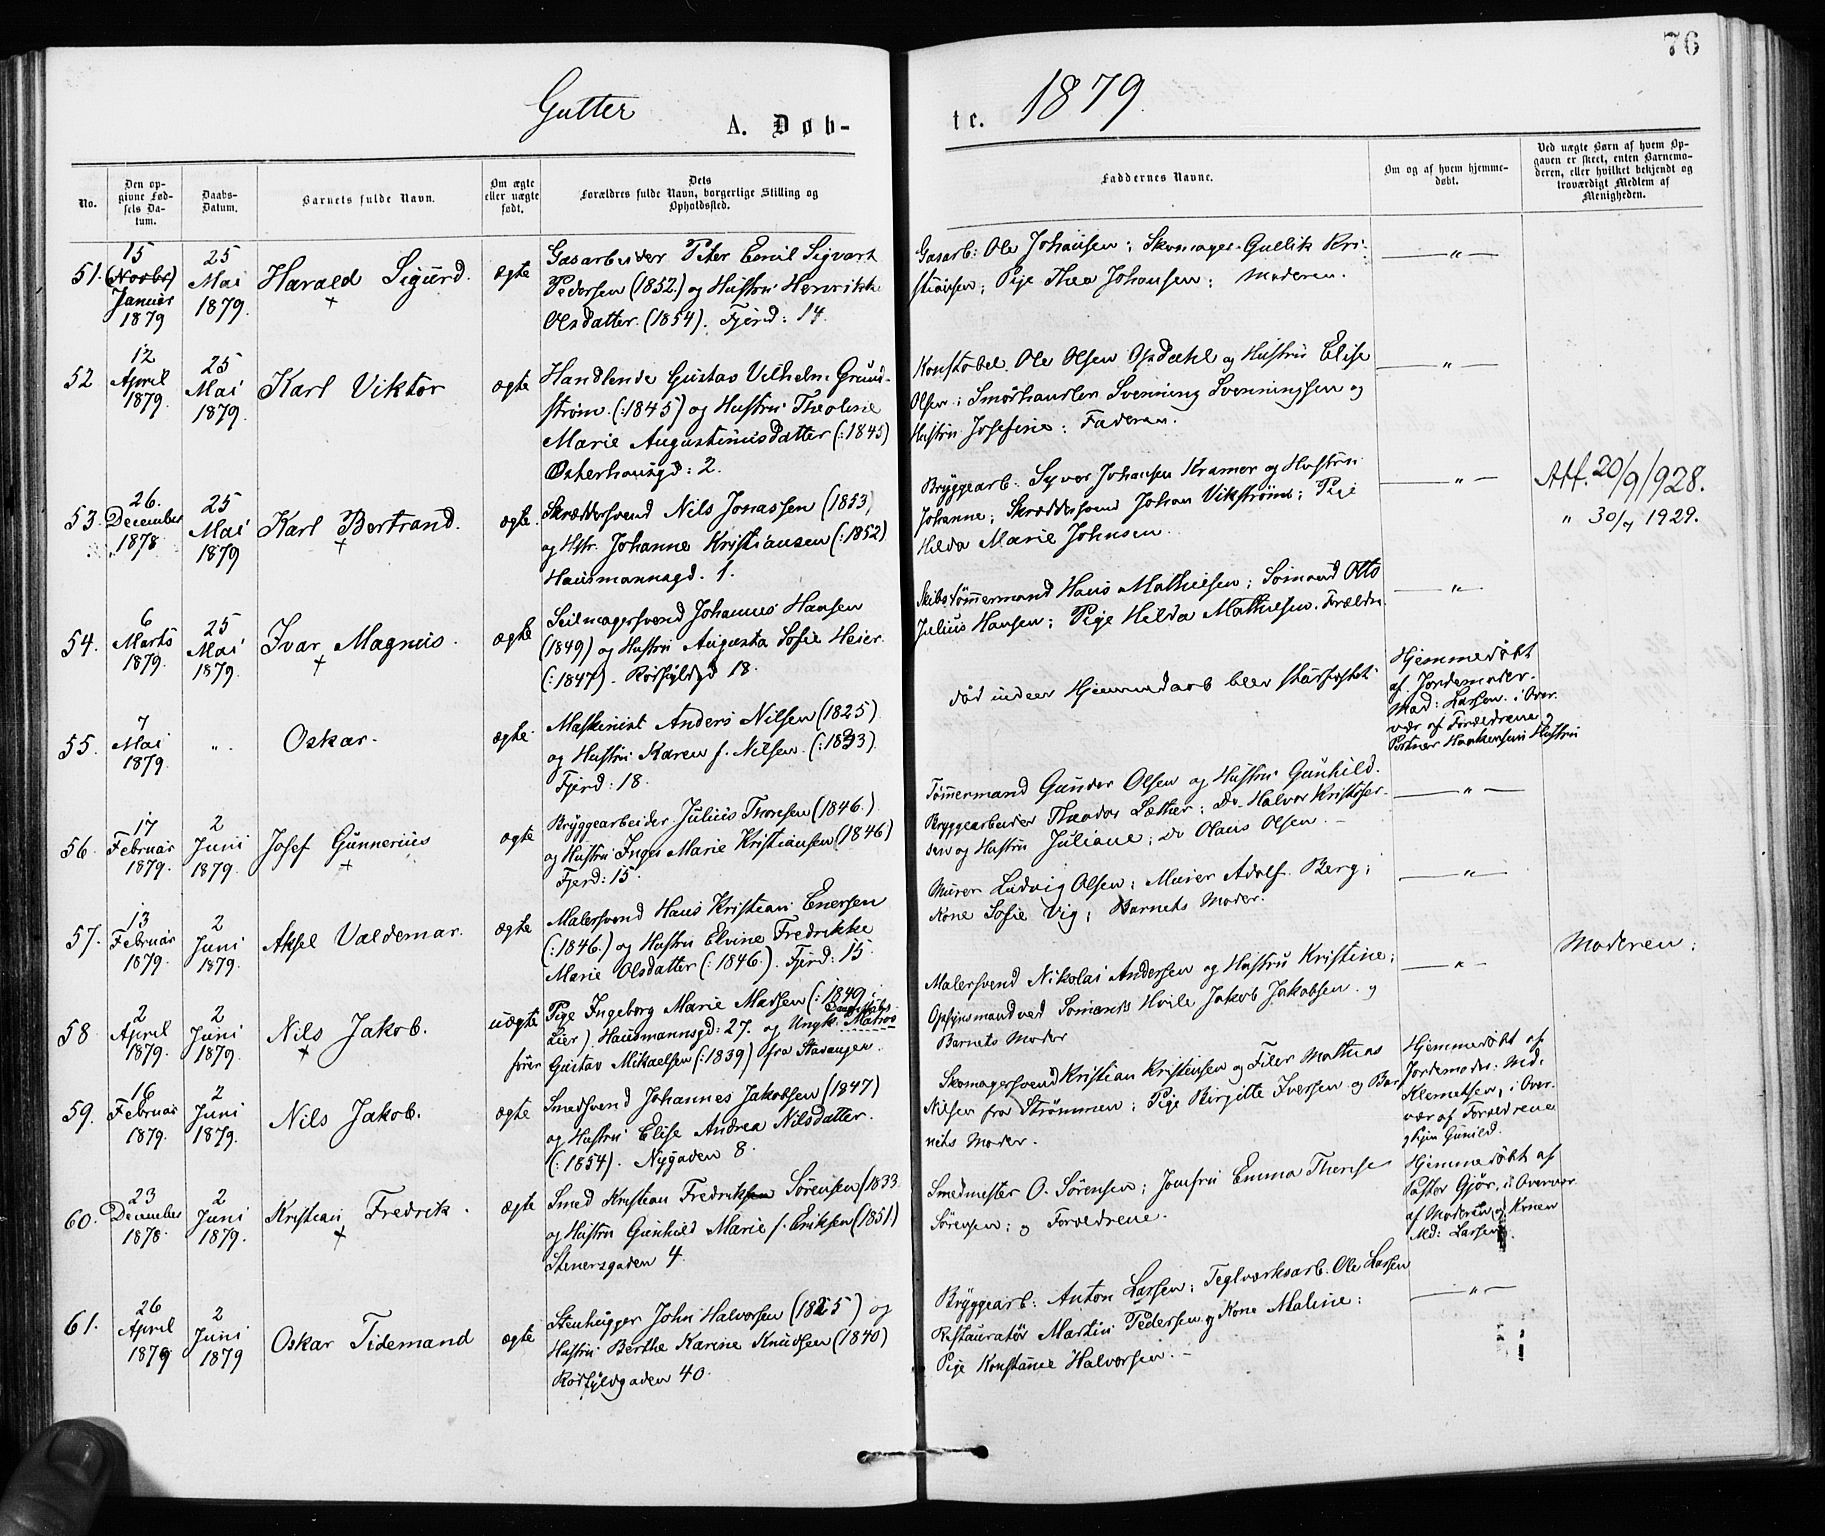 76
Gutter
A. Døb-
te. 1879.
No.
Den op-
givne Fød-
sels Da-
tum.
Daabs-
Datum.
Barnets fulde Navn.
Om ægte
eller uægte
født.
Dets
Forældres fulde Navn, borgerlige Stilling og
Opholdssted.
Faddernes Navne.
Om og af hvem hjemme-
døbt.
Ved uægte Børn af hvem Op-
gaven er skeet, enten Barnemo-
deren, eller hvilket bekjendt og
troværdigt Medlem af
Menigheden.
51.
15
(Novbr)
Januar
1879
25
Mai
1879.
Harald Sigurd.
ægte
Gasarbeider Peter Emil Sigvart
Pedersen (1852.) og Hustru Henrikke
Olsdatter. (1854). Fjerd: 14.
Gasarb: Ole Johansen; Skomager Gullik Kri-
stiansen; Pige Thea Johansen; Moderen.
— " —
52
12
April
1879.
25
Mai
1879.
Karl Viktor
ægte
Handlende Gustav Vilhelm Grund-
strøm. (:1845) og Hustru Theoline
Marie Augustinusdatter (:1845)
Osterhausgd: 2.
Konstabel Ole Olsen Opdahl og Hustru Elise
Olsen; Smørhandler Svenning Svenningsen og
Hustru Josefine; Faderen.
— " —
53.
26.
December
1878
25
Mai
1879
Karl Bertrand.
ægte.
Skræddersvend Nils Jonassen (1853)
og Hstr. Johanne Kristiansen (:1852)
Hausmannsgd. 1.
Bryggearb: Syver Johansen Kramer og Hustru
Johanne; Skræddersvend Johan Vikstrøm; Pige
Hilda Marie Johnsen.
— " —
Att. 20/9 1928.
" 30/4 1929.
54.
6
Marts
1879.
25
Mai
1879.
Ivar Magnus.
ægte
Seilmagersvend Johannes Hansen
(1849) og Hustru Augusta Sofie Heier.
(:1847). Rødfyldgd 18.
Skibstømmermand Hans Mathiesen; Sømand Otto
Julius Hansen; Pige Hilda Mathiesen. Forældre.
— " —
55.
7
Mai
1879.
"
Oskar.
ægte.
Maskinist Anders Nilsen (1825)
og Hustru Karen f. Nilsen. (:1833).
Fjerd: 18.
død inden Hjemmedaab blev stadfæstet.
Hjemmedøbt
af Jordemoder
Mad: Larsen. i Over
vær af Forældrene
Hustru
56.
17
Februar
1879.
2
Juni
1879.
Josef Gunnerius
ægte
Bryggearbeider Julius Thoresen (1846.)
og Hustru Inger Marie Kristiansen (1846)
Fjerd: 15.
Tømmermand Gunder Olsen og Hustru Gunhild.
Bryggearbeider Theodor Læther; Do Halvor Kristofer-
sen og Hustru Juliane; Do Olaus Olsen.
— " —
57.
13
Februar
1879.
2
Juni
1879.
Aksel Valdemar.
ægte
Malersvend Hans Kristian Enersen
(:1846.) og Hustru Elvine Fredrikke
Marie Olsdatter (:1846.). Fjerd: 15.
Murer Ludvig Olsen; Murer Adolf Berg;
Kone Sofie Vig; Barnets Moder.
— " —
58
2
April
1879.
2
Juni
1879.
Nils Jakob.
uægte
Pige Ingeborg Marie Madsen (:1849
Lier). Hausmannsgd: 27. og Ungk. Matros
Gustav Mikaelsen (:1839) fra Stavanger.
Malersvend Nikolai Andersen og Hustru Kristine;
Opsynsmand ved Sømands Hvile Jakob Jakobsen. og
Barnets Moder
— " —
Moderen:
59.
16
Februar
1879.
2
Juni
1879.
Nils Jakob.
ægte
Smedsvend Johannes Jakobsen (1847)
og Hustru Elise Andrea Nilsdatter.
(:1854). Nygaden 8.
Skomagersvend Kristian Kristensen og Filer Mathias
Nilsen fra Strømmen; Pige Birgitte Iversen og Bar
nets Moder.
Hjemmedøbt af
Jordemoder: Md.
Klemetsen, i Over-
vær af Forældrene
og Pigen Gunild.
60.
23
December
1878.
2
Juni
1879.
Kristian Fredrik.
ægte
Smed Kristian Fredriksen Sørensen (1833.
og Hustru Gunhild Marie f. Eriksen (1851)
Stenersgaden 4
Smedmester O. Sørensen; Jomfru Emma Therese
Sørensen; og Forældrene.
Hjemmedøbt af
Pastor Gjør, i Overvær
af Moderen og Konen
Md: Larsen.
61.
26
April
1879
2
Juni
1879
Oskar Tidemand
ægte
Stenhugger John Halvorsen (1825) og
Hustru Berthe Karine Knudsen (1840)
Rødfyldgaden 40.
Bryggearb: Anton Larsen; Teglværksarb. Ole Larsen
Restauratør Martin Pedersen og Kone Maline;
Pige Konstance Halvorsen.
— " —